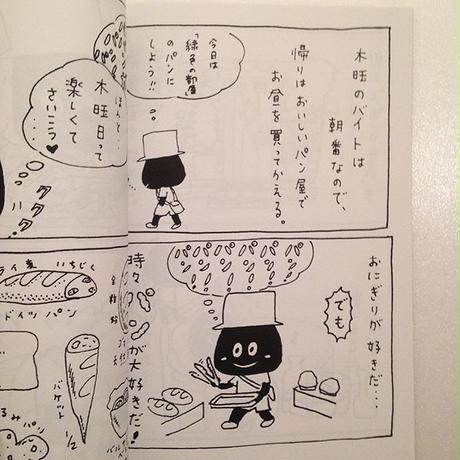 木旺のバイトは
朝番なので、
帰りはおいしいパン屋で
お昼を買ってかえる。
今日は
「緑色の部屋」
のパンに
しよう!!
おにぎりが好きだ…
でも
時々パンが大好きだ!
ほんと…
木旺日って
楽しくて
さいこう♥
ククク…
ハク!
ライ麦
いちじく
ドイツパン
バゲット
1/2
くるみパン